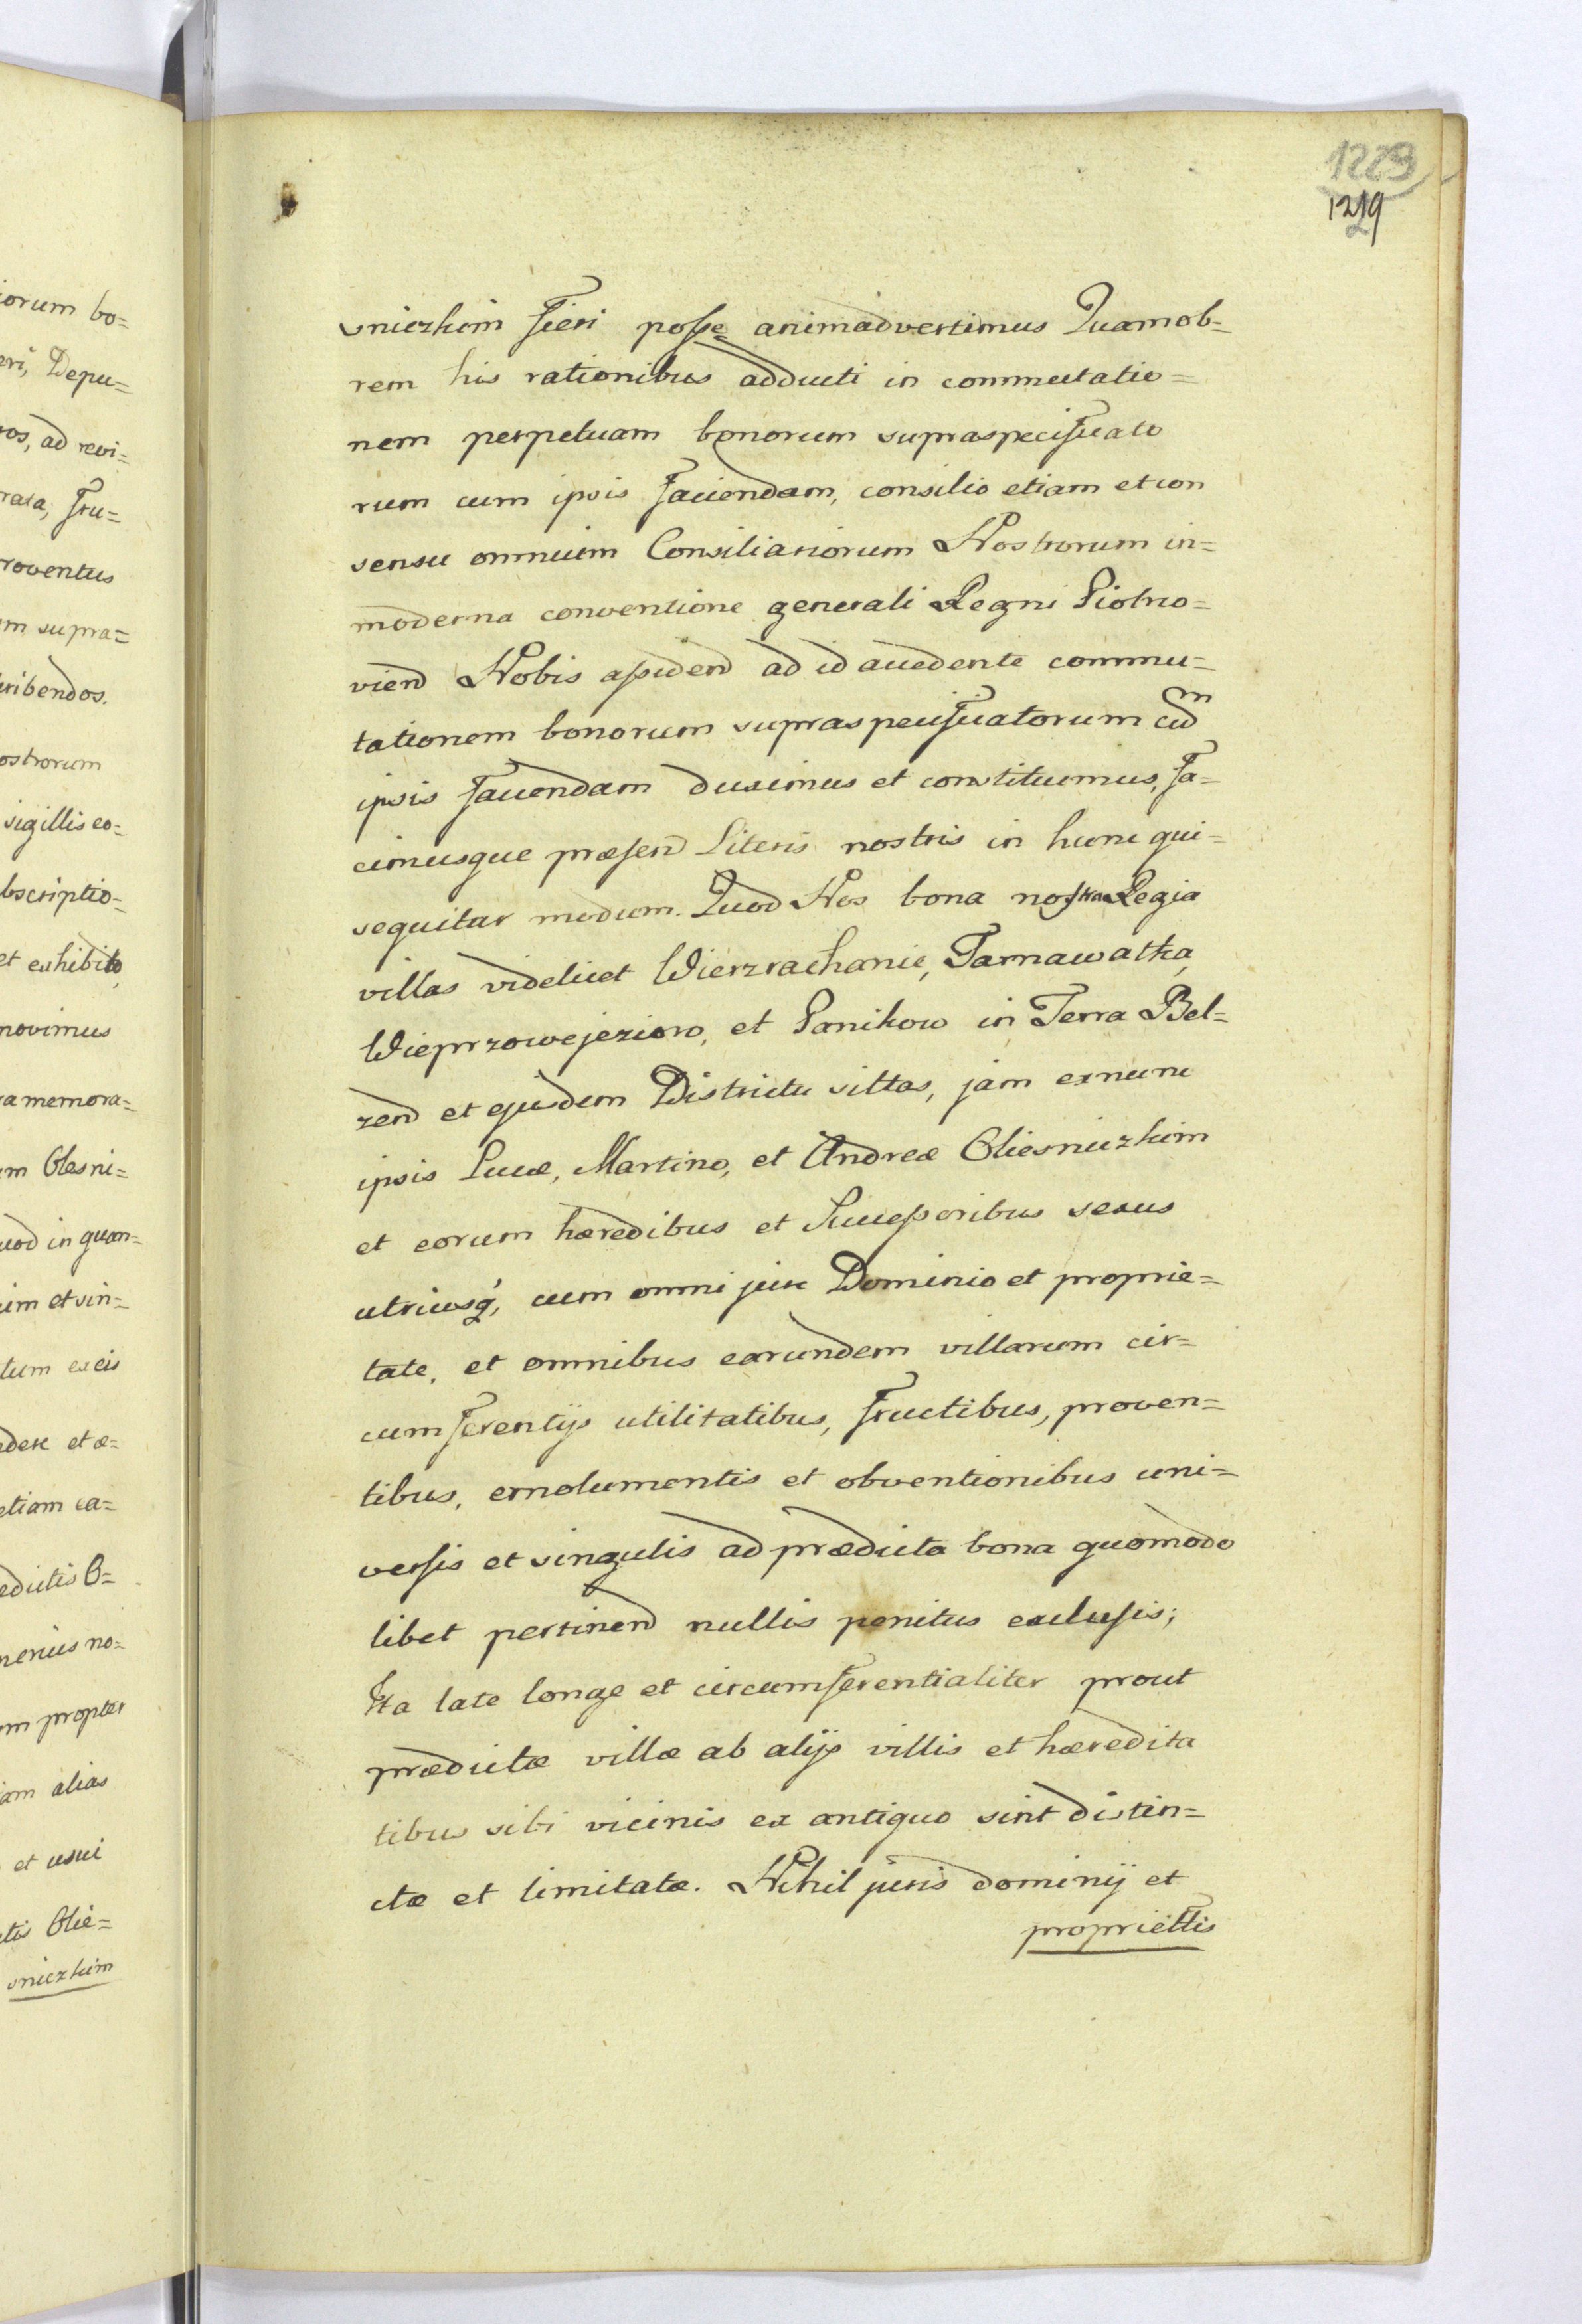 iorum bo=
eri, Depu=
ros, ad revi=
rata, fru=
roventus
um supra=
cribendos.
ostrorum
sigillis eo=
bscriptio=
et exhibito,
novimus
ra memora=
um Olesni=
uod in quan=
im et sin=
tum ex eis
dere et æ=
etiam ca=
edictis O=
nerius no=
um propter
iam alias
et usui
tis Olie=
sniczkim
1223
1229
sniczkim fieri posse animadvertimus Quamob=
rem his rationibus adducti in commutatio=
nem perpetuam bonorum supraspecificato
rum cum ipsis faciendam, consilio etiam et con
sensu omnium Consiliariorum Nostrorum in=
moderna conventione generali Regni Piotrco=
vien Nobis assiden ad id accedente commu=
tationem bonorum supraspecificatorum cum
ipsis faciendam duximus et constituimus, fa=
cimusque præsen Literis nostris in hunc qui=
sequitur modum. Quod Nos bona nostra Regia
villas videlicet Wierzrachanie, Tarnawatka,
Wieprzowejezioro, et Panikow in Terra Bel=
zen et ejusdem Districtu sittas, jam exnunc
ipsis Lucæ, Martino, et Andreæ Oliesniczkim
et eorum hæredibus et Successoribus sexus
utriusq, cum omni jure Dominio et proprie=
tate, et omnibus earundem villarum cir=
cumferentijs utilitatibus, fructibus, proven=
tibus, emolumentis et obventionibus uni=
versis et singulis ad prædicta bona quomodo
libet pertinen nullis penitus exclusis;
Ita late longe et circumferentialiter prout
prædictæ villæ ab alijs villis et hæredita
tibus sibi vicinis ex antiquo sint distin=
ctæ et limitatæ. Nihil juris dominij et
propriettis